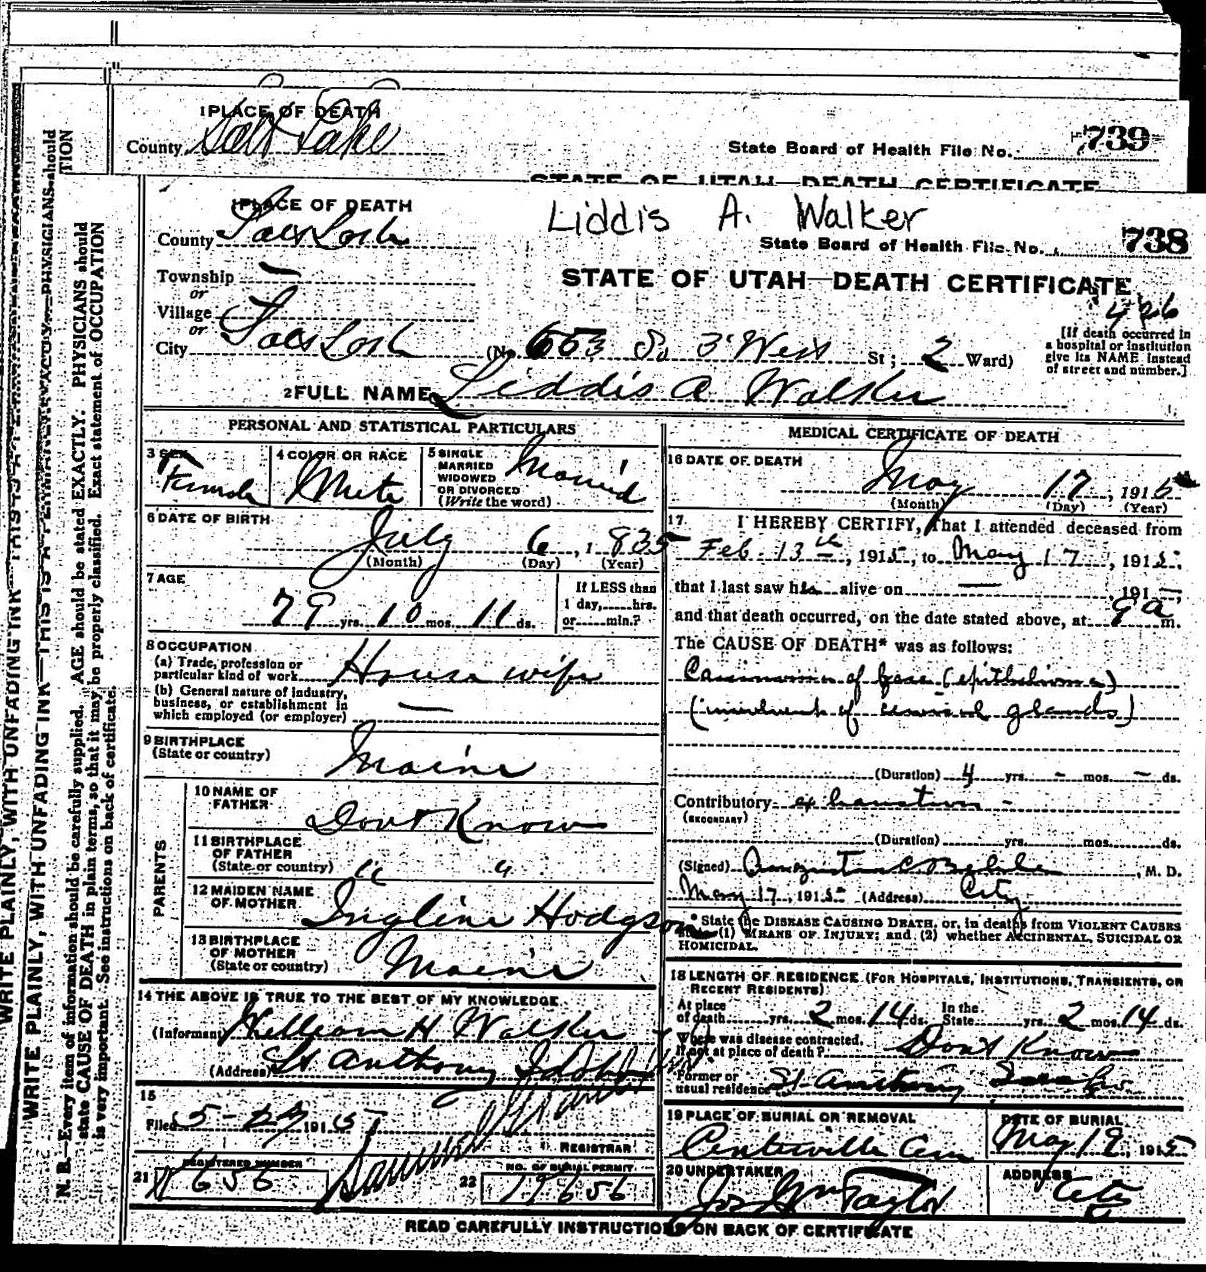 1 PLACE OF DEATH
County Salt Lake
State Board of Health File No. 739
STATE OF UTAH—DEATH CERTIFICATE
PLACE OF DEATH
Liddis A. Walker
County Salt Lake
State Board of Health File No. 738
Township —
STATE OF UTAH—DEATH CERTIFICATE
or
Village
or
City Salt Lake (No. 653 So 3' West St; 2 Ward)
426
[If death occurred in
a hospital or institution
give its NAME instead
of street and number.]
2 FULL NAME Liddis A Walker
PERSONAL AND STATISTICAL PARTICULARS
3 SEX Female
4 COLOR OR RACE White
5 SINGLE
MARRIED
WIDOWED
OR DIVORCED
(Write the word) Married
6 DATE OF BIRTH
July 6, 1835
(Month) (Day) (Year)
7 AGE
79 yrs. 10 mos. 11 ds.
If LESS than
1 day,......hrs.
or......min.?
8 OCCUPATION
(a) Trade, profession or
particular kind of work House wife
(b) General nature of industry,
business, or establishment in
which employed (or employer) —
9 BIRTHPLACE
(State or country) Maine
PARENTS
10 NAME OF
FATHER Dont Know
11 BIRTHPLACE
OF FATHER
(State or country) " "
12 MAIDEN NAME
OF MOTHER Ingline Hodgson
13 BIRTHPLACE
OF MOTHER
(State or country) Maine
14 THE ABOVE IS TRUE TO THE BEST OF MY KNOWLEDGE
(Informant) William H Walker
(Address) St Anthony Idaho
15
Filed 5- 1915
REGISTRAR
21 REGISTERED NUMBER
656
22 NO. OF BURIAL PERMIT
MEDICAL CERTIFICATE OF DEATH
16 DATE OF DEATH
May 17, 1915
(Month) (Day) (Year)
17 I HEREBY CERTIFY, That I attended deceased from
Feb. 13th, 1915, to May 17, 1915.
that I last saw h alive on — 191 —,
and that death occurred, on the date stated above, at 9 a m.
The CAUSE OF DEATH* was as follows:
Carcinoma of face (epithelioma)
(involvement of cervical glands)
(Duration) 4 yrs. - mos. - ds.
Contributory exhaustion -
(SECONDARY)
(Duration) yrs. mos. ds.
(Signed) , M. D.
May 17, 1915 (Address) City
* State the DISEASE CAUSING DEATH, or, in deaths from VIOLENT CAUSES
state (1) MEANS OF INJURY; and (2) whether ACCIDENTAL, SUICIDAL OR
HOMICIDAL.
18 LENGTH OF RESIDENCE (FOR HOSPITALS, INSTITUTIONS, TRANSIENTS, OR
RECENT RESIDENTS)
At place
of death yrs. 2 mos. 14 ds. In the
State yrs. 2 mos. 14 ds.
Where was disease contracted,
if not at place of death? Dont Know
Former or
usual residence St Anthony
19 PLACE OF BURIAL OR REMOVAL
Centerville Cem
DATE OF BURIAL
May 19, 1915
20 UNDERTAKER
Jos Wm Taylor
ADDRESS
City
READ CAREFULLY INSTRUCTIONS ON BACK OF CERTIFICATE
WRITE PLAINLY, WITH UNFADING INK—THIS IS A PERMANENT
WRITE PLAINLY, WITH UNFADING INK—THIS IS A PERMANENT
PHYSICIANS should
N. B.—Every item of information should be carefully supplied. AGE should be stated EXACTLY. PHYSICIANS should
state CAUSE OF DEATH in plain terms, so that it may be properly classified. Exact statement of OCCUPATION
is very important. See instructions on back of certificate.